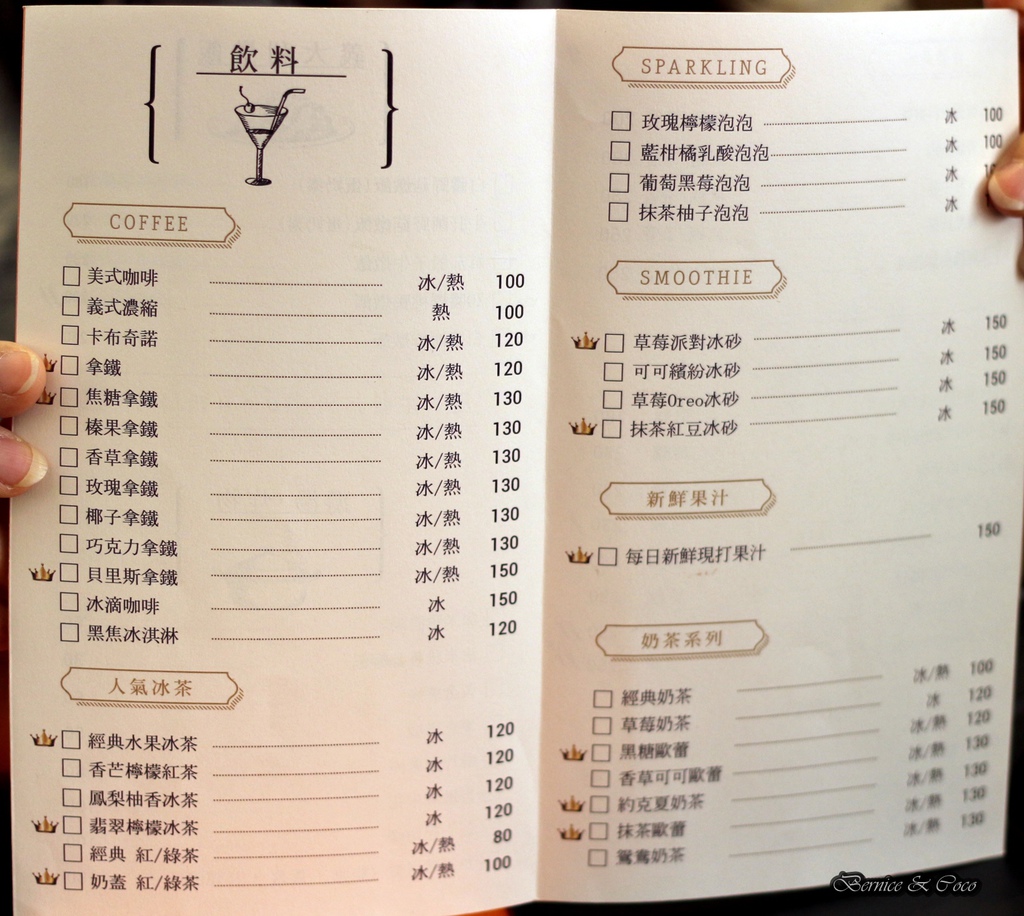 飲料
COFFEE
美式咖啡 冰/熱 100
義式濃縮 熱 100
卡布奇諾 冰/熱 120
拿鐵 冰/熱 120
焦糖拿鐵 冰/熱 130
榛果拿鐵 冰/熱 130
香草拿鐵 冰/熱 130
玫瑰拿鐵 冰/熱 130
椰子拿鐵 冰/熱 130
巧克力拿鐵 冰/熱 130
貝里斯拿鐵 冰/熱 150
冰滴咖啡 冰 150
黑焦冰淇淋 冰 120
人氣冰茶
經典水果冰茶 冰 120
香芒檸檬紅茶 冰 120
鳳梨柚香冰茶 冰 120
翡翠檸檬冰茶 冰 120
經典 紅/綠茶 冰/熱 80
奶蓋 紅/綠茶 冰/熱 100
SPARKLING
玫瑰檸檬泡泡 冰 100
藍柑橘乳酸泡泡 冰 100
葡萄黑莓泡泡 冰
抹茶柚子泡泡 冰
SMOOTHIE
草莓派對冰砂 冰 150
可可繽紛冰砂 冰 150
草莓Oreo冰砂 冰 150
抹茶紅豆冰砂 冰 150
新鮮果汁
每日新鮮現打果汁 150
奶茶系列
經典奶茶 冰/熱 100
草莓奶茶 冰 120
黑糖歐蕾 冰/熱 120
香草可可歐蕾 冰/熱 130
約克夏奶茶 冰/熱 130
抹茶歐蕾 冰/熱 130
鴛鴦奶茶 冰/熱 130
Bernice & Coco